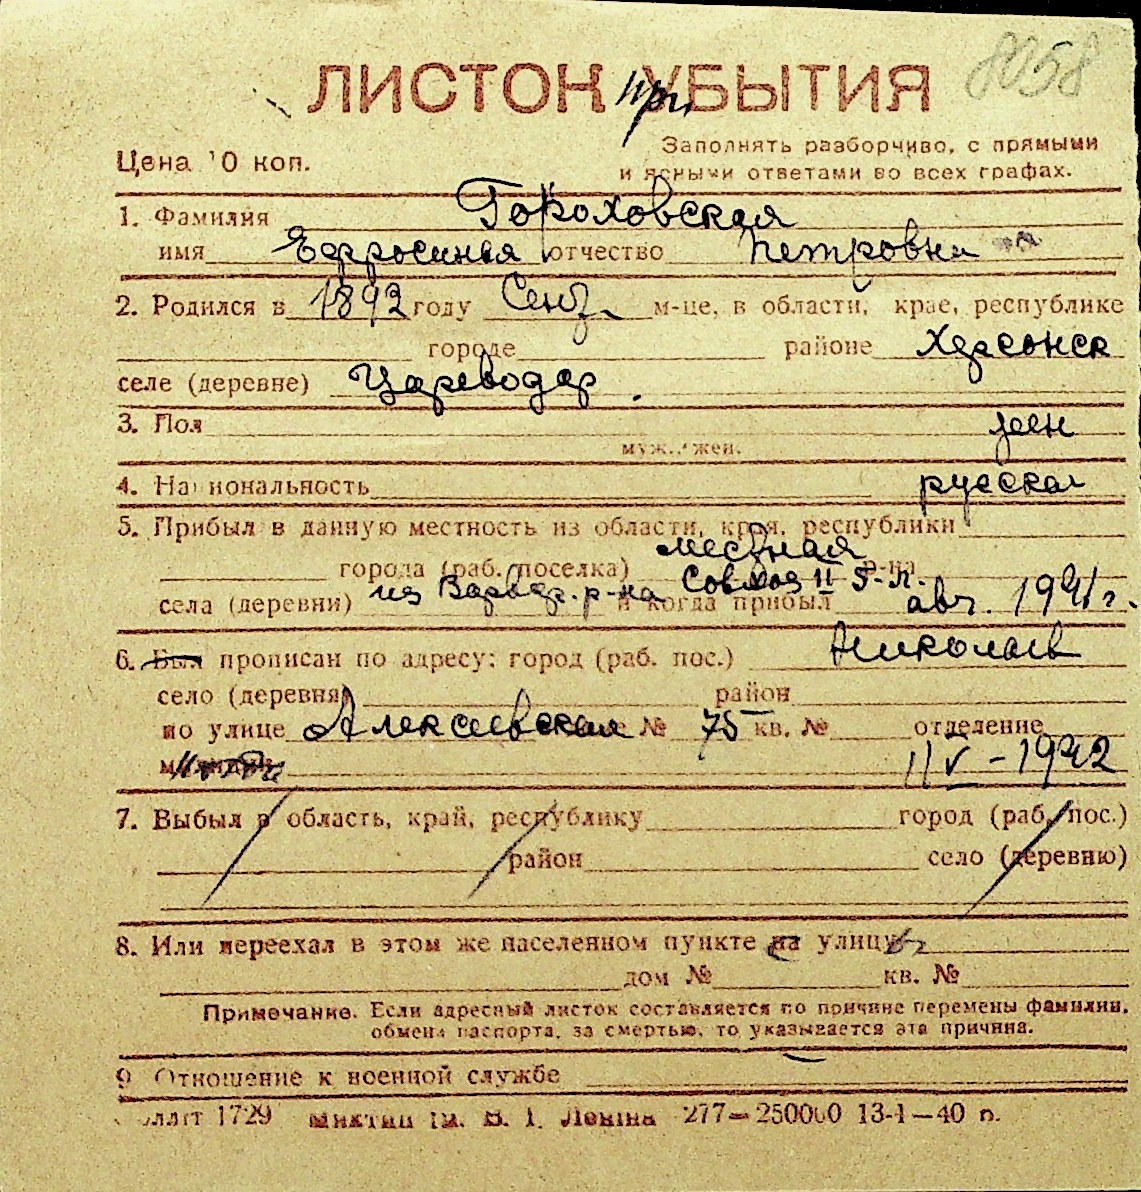 8058
ЛИСТОК при УБЫТИЯ
Цена 10 коп.
Заполнять разборчиво, с прямыми
и ясными ответами во всех графах.
1. Фамилия Гороховская
имя Ефросинья отчество Петровна
2. Родился в 1892 году Сент. м-це, в области, крае, республике
городе районе Херсонск
селе (деревне) Цареводар.
3. Пол жен
муж., жен.
4. Национальность русская
5. Прибыл в данную местность из области, края, республики
местная
города (раб. поселка) Совхоз II р-на
села (деревни) из Варвар. р-на и когда прибыл авг. 1941 г.
6. Был прописан по адресу: город (раб. пос.) Николаев
село (деревня) район
по улице Алексеевская № 75 кв. № отделение
милиции 11 V - 1942
7. Выбыл в область, край, республику город (раб. пос.)
район село (деревню)
8. Или переехал в этом же населенном пункте на улицу
дом № кв. №
Примечание. Если адресный листок составляется по причине перемены фамилии,
обмена паспорта, за смертью, то указывается эта причина.
9. Отношение к военной службе —
1729 ім. В. І. Леніна 277—250000 13-1—40 п.